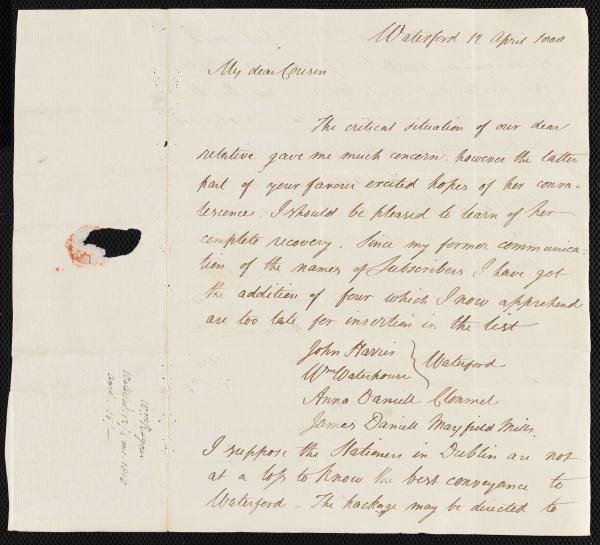 Waterford 12 April 1808
My dear Cousin
The critical situation of our dear
relative gave me much concern: however the latter
part of your favour excited hopes of her conva-
lescence. I should be pleased to learn of her
complete recovery. Since my former communica-
tion of the names of Subscribers I have got
the addition of four which I now apprehend
are too late for insertion in the list
John Harris
Wm Waterhouse } Waterford
Anna Daniell Clonmel
James Daniell Mayfield Mills.
I suppose the Stationers in Dublin are not
at a loss to know the best conveyance to
Waterford – The package may be directed to